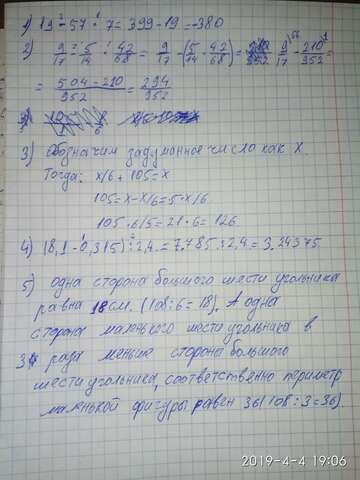 1) 19 - 57 · 7 = 399 - 19 = -380
2) 9/17 : 5/14 : 42/68 = 9/17 - (5/14 · 42/68) = 9/17 - 210/952 =
= 504 - 210/952 = 294/952
3) Обозначим задуманное число как x.
Тогда: x/6 + 105 = x
105 = x - x/6 = 5 · x/6
105 · 6/5 = 21 · 6 = 126
4) (8,1 - 0,315) : 2,4 = 7,785 : 2,4 = 3,24375
5) одна сторона большого шести угольника
равна 18 см. (108 : 6 = 18). А одна
сторона маленького шести угольника в
3 раза меньше стороны большого
шести угольника, соответственно периметр
маленькой фигуры равен 36 (108 : 3 = 36).
2019-4-4 19:06